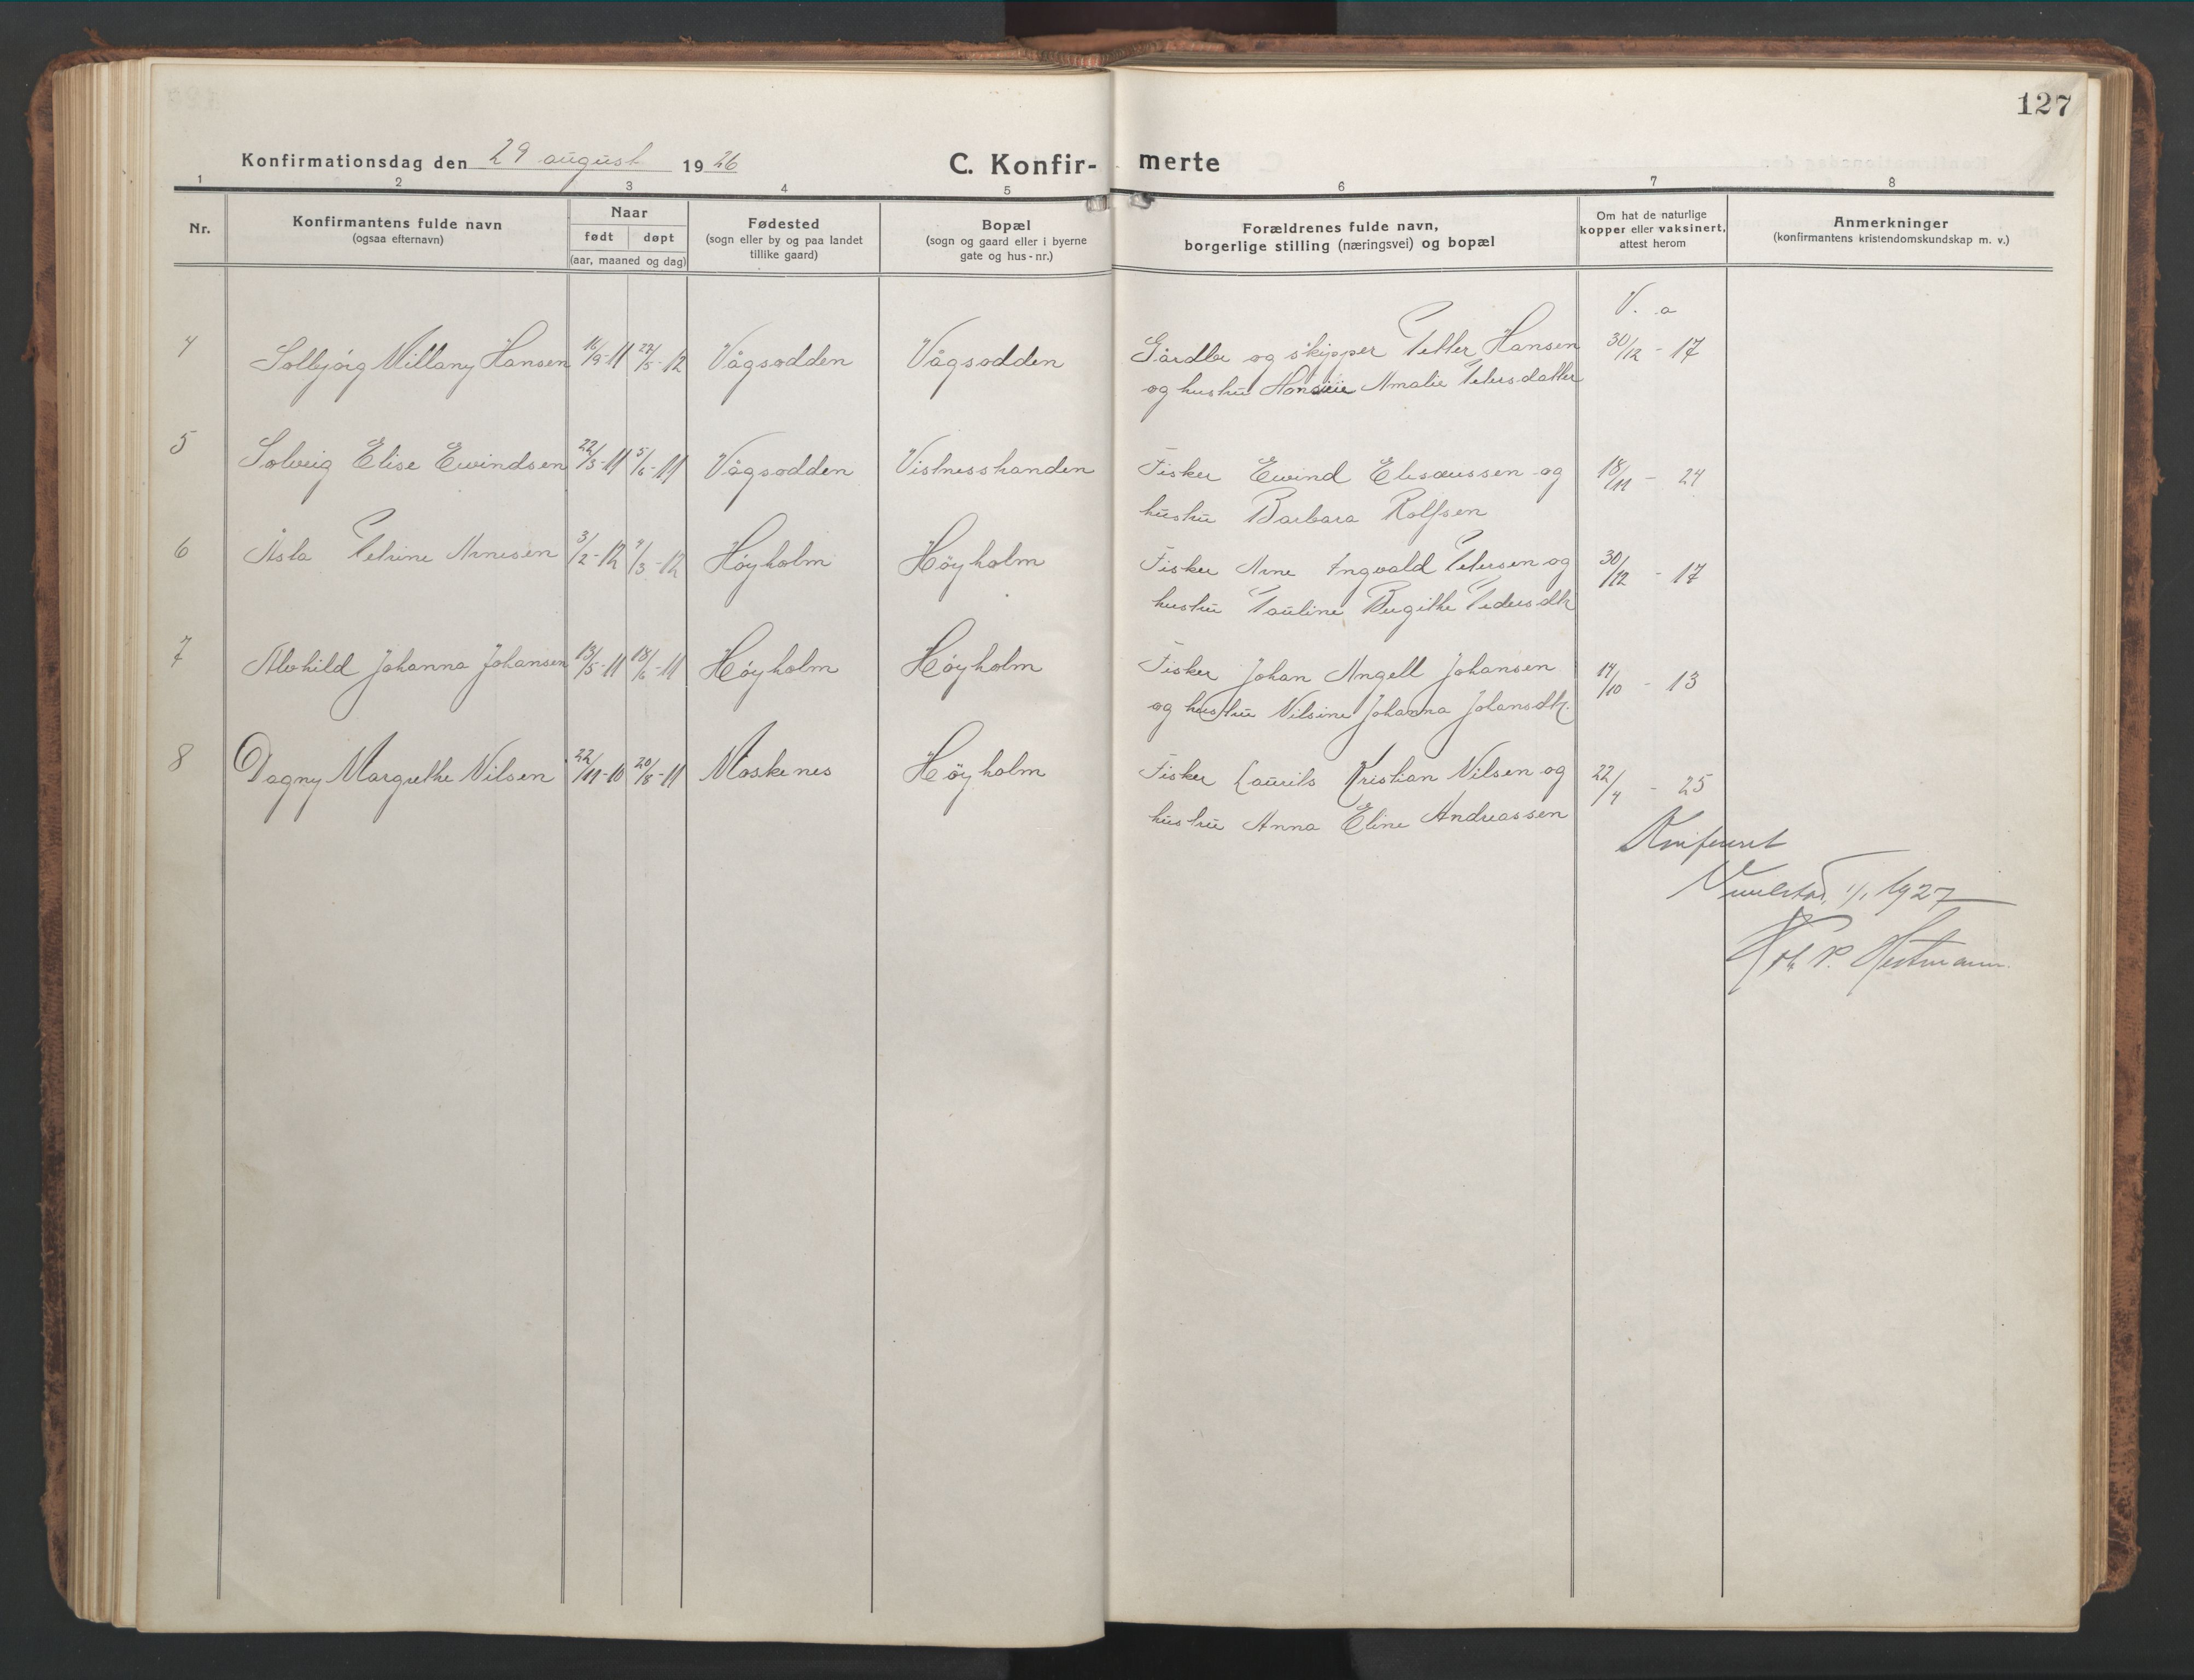 127
Konfirmationsdag den 29 august 1926
C. Konfir- merte
1 2 3 4 5 6 7 8
Nr.
Konfirmantens fulde navn
(ogsaa efternavn)
Naar
født døpt
(aar, maaned og dag)
Fødested
(sogn eller by og paa landet
tillike gaard)
Bopæl
(sogn og gaard eller i byerne
gate og hus-nr.)
Forældrenes fulde navn,
borgerlige stilling (næringsvei) og bopæl
Om hat de naturlige
kopper eller vaksinert,
attest herom
Anmerkninger
(konfirmantens kristendomskundskap m. v.)
V. a
4 Solbjørg Millany Hansen 16/9-11 27/5-12 Vågsodden Vågsodden Gårdbr og skipper Petter Hansen 30/12 - 17
og hustru Amalie Petersdatter
5 Solveig Elise Ewindsen 22/3-11 5/6-11 Vågsodden Vistnesstranden Fisker Ewind Elisæussen og 18/11 - 24
hustru Barbara Rolfsen
6 Asta Petrine Arnesen 3/2-12 4/3-12 Høyholm Høyholm Fisker Arne Ingvald Petersen og 30/12 - 17
hustru Pauline Birgithe Pedersdtr
7 Alvhild Johanna Johansen 13/5-11 18/6-11 Høyholm Høyholm Fisker Johan Angell Johansen 14/10 - 13
og hustru Nilsine Johanna Johansdtr.
8 Dagny Margrethe Nilsen 22/11-10 20/8-11 Moskenes Høyholm Fisker Laurits Kristian Nilsen og 22/4 - 25
hustru Anna Eline Andreassen
Konferert
1/1 1927
P. Hestmann.